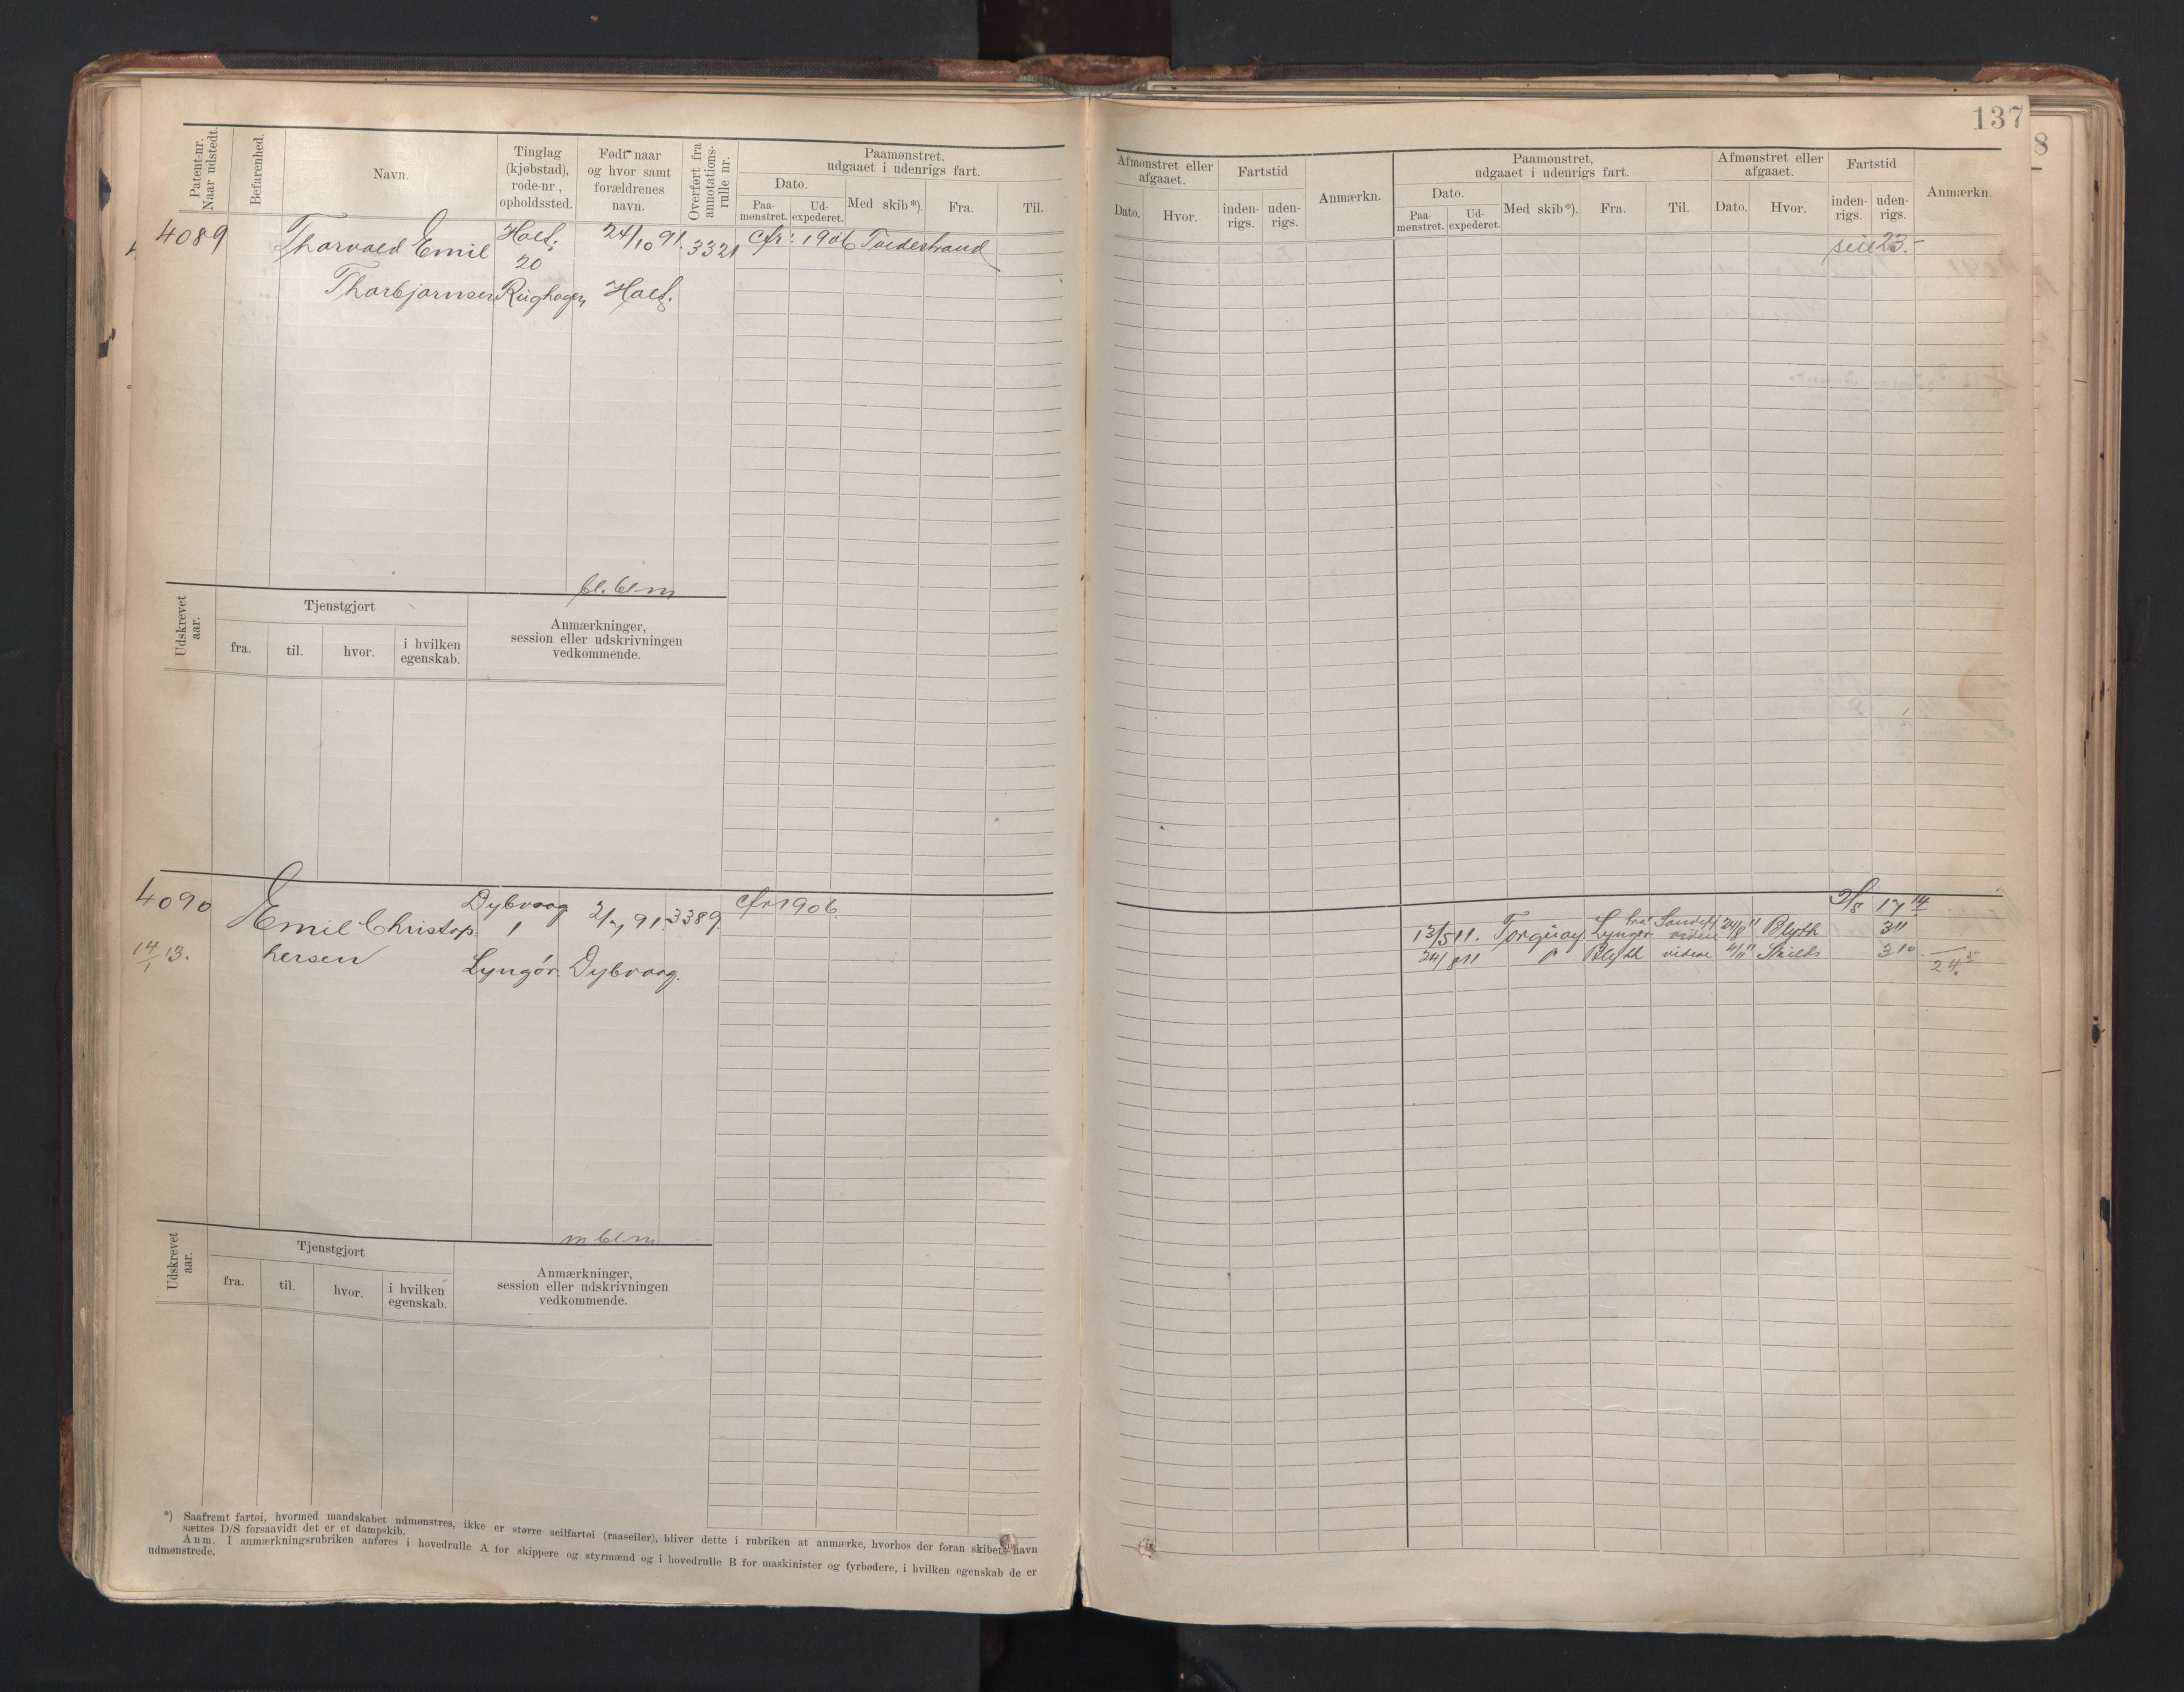 137
8
Patent-nr. Naar udstedt.
Befarenhed.
Navn.
Tinglag (kjøbstad), rode-nr., opholdssted.
Født naar og hvor samt forældrenes navn.
Overført fra annotations-rulle nr.
Paamønstret, udgaaet i udenrigs fart.
Dato.
Paa-mønstret.
Ud-expederet.
Med skib*).
Fra.
Til.
Afmønstret eller afgaaet.
Dato.
Hvor.
Fartstid
inden-rigs.
uden-rigs.
Anmærkn.
Paamønstret, udgaaet i udenrigs fart.
Dato.
Paa-mønstret.
Ud-expederet.
Med skib*).
Fra.
Til.
Afmønstret eller afgaaet.
Dato.
Hvor.
Fartstid
inden-rigs.
uden-rigs.
Anmærkn.
4089 Thorvald Emil Holt. 24/10 91. 3321 cfr: 1906 Tvedestrand 23.-
20
Thorbjørnsen Holt.
Udskrevet aar.
Tjenstgjort
fra.
til.
hvor.
i hvilken egenskab.
Anmærkninger, session eller udskrivningen vedkommende.
4090 Emil Christop Dybvaag 91. 3389. cfr 1906.
1
14/1 13. hersen Lyngør. Dybvaag.
17 14
13/5 11. Torquay. Lyngør videre 24/8 11 Blyth 3 11
24/8 11 Blyth videre 4/11 Shields 3 10
24 5
Udskrevet aar.
Tjenstgjort
fra.
til.
hvor.
i hvilken egenskab.
Anmærkninger, session eller udskrivningen vedkommende.
*) Saafremt fartøi, hvormed mandskabet udmønstres, ikke er større seilfartøi (raaseiler), bliver dette i rubriken at anmærke, hvorhos der foran skibets navn
sættes D/S forsaavidt det er et dampskib.
Anm. I anmærkningsrubriken anføres i hovedrulle A for skippere og styrmænd og i hovedrulle B for maskinister og fyrbødere, i hvilken egenskab de er
udmønstrede.